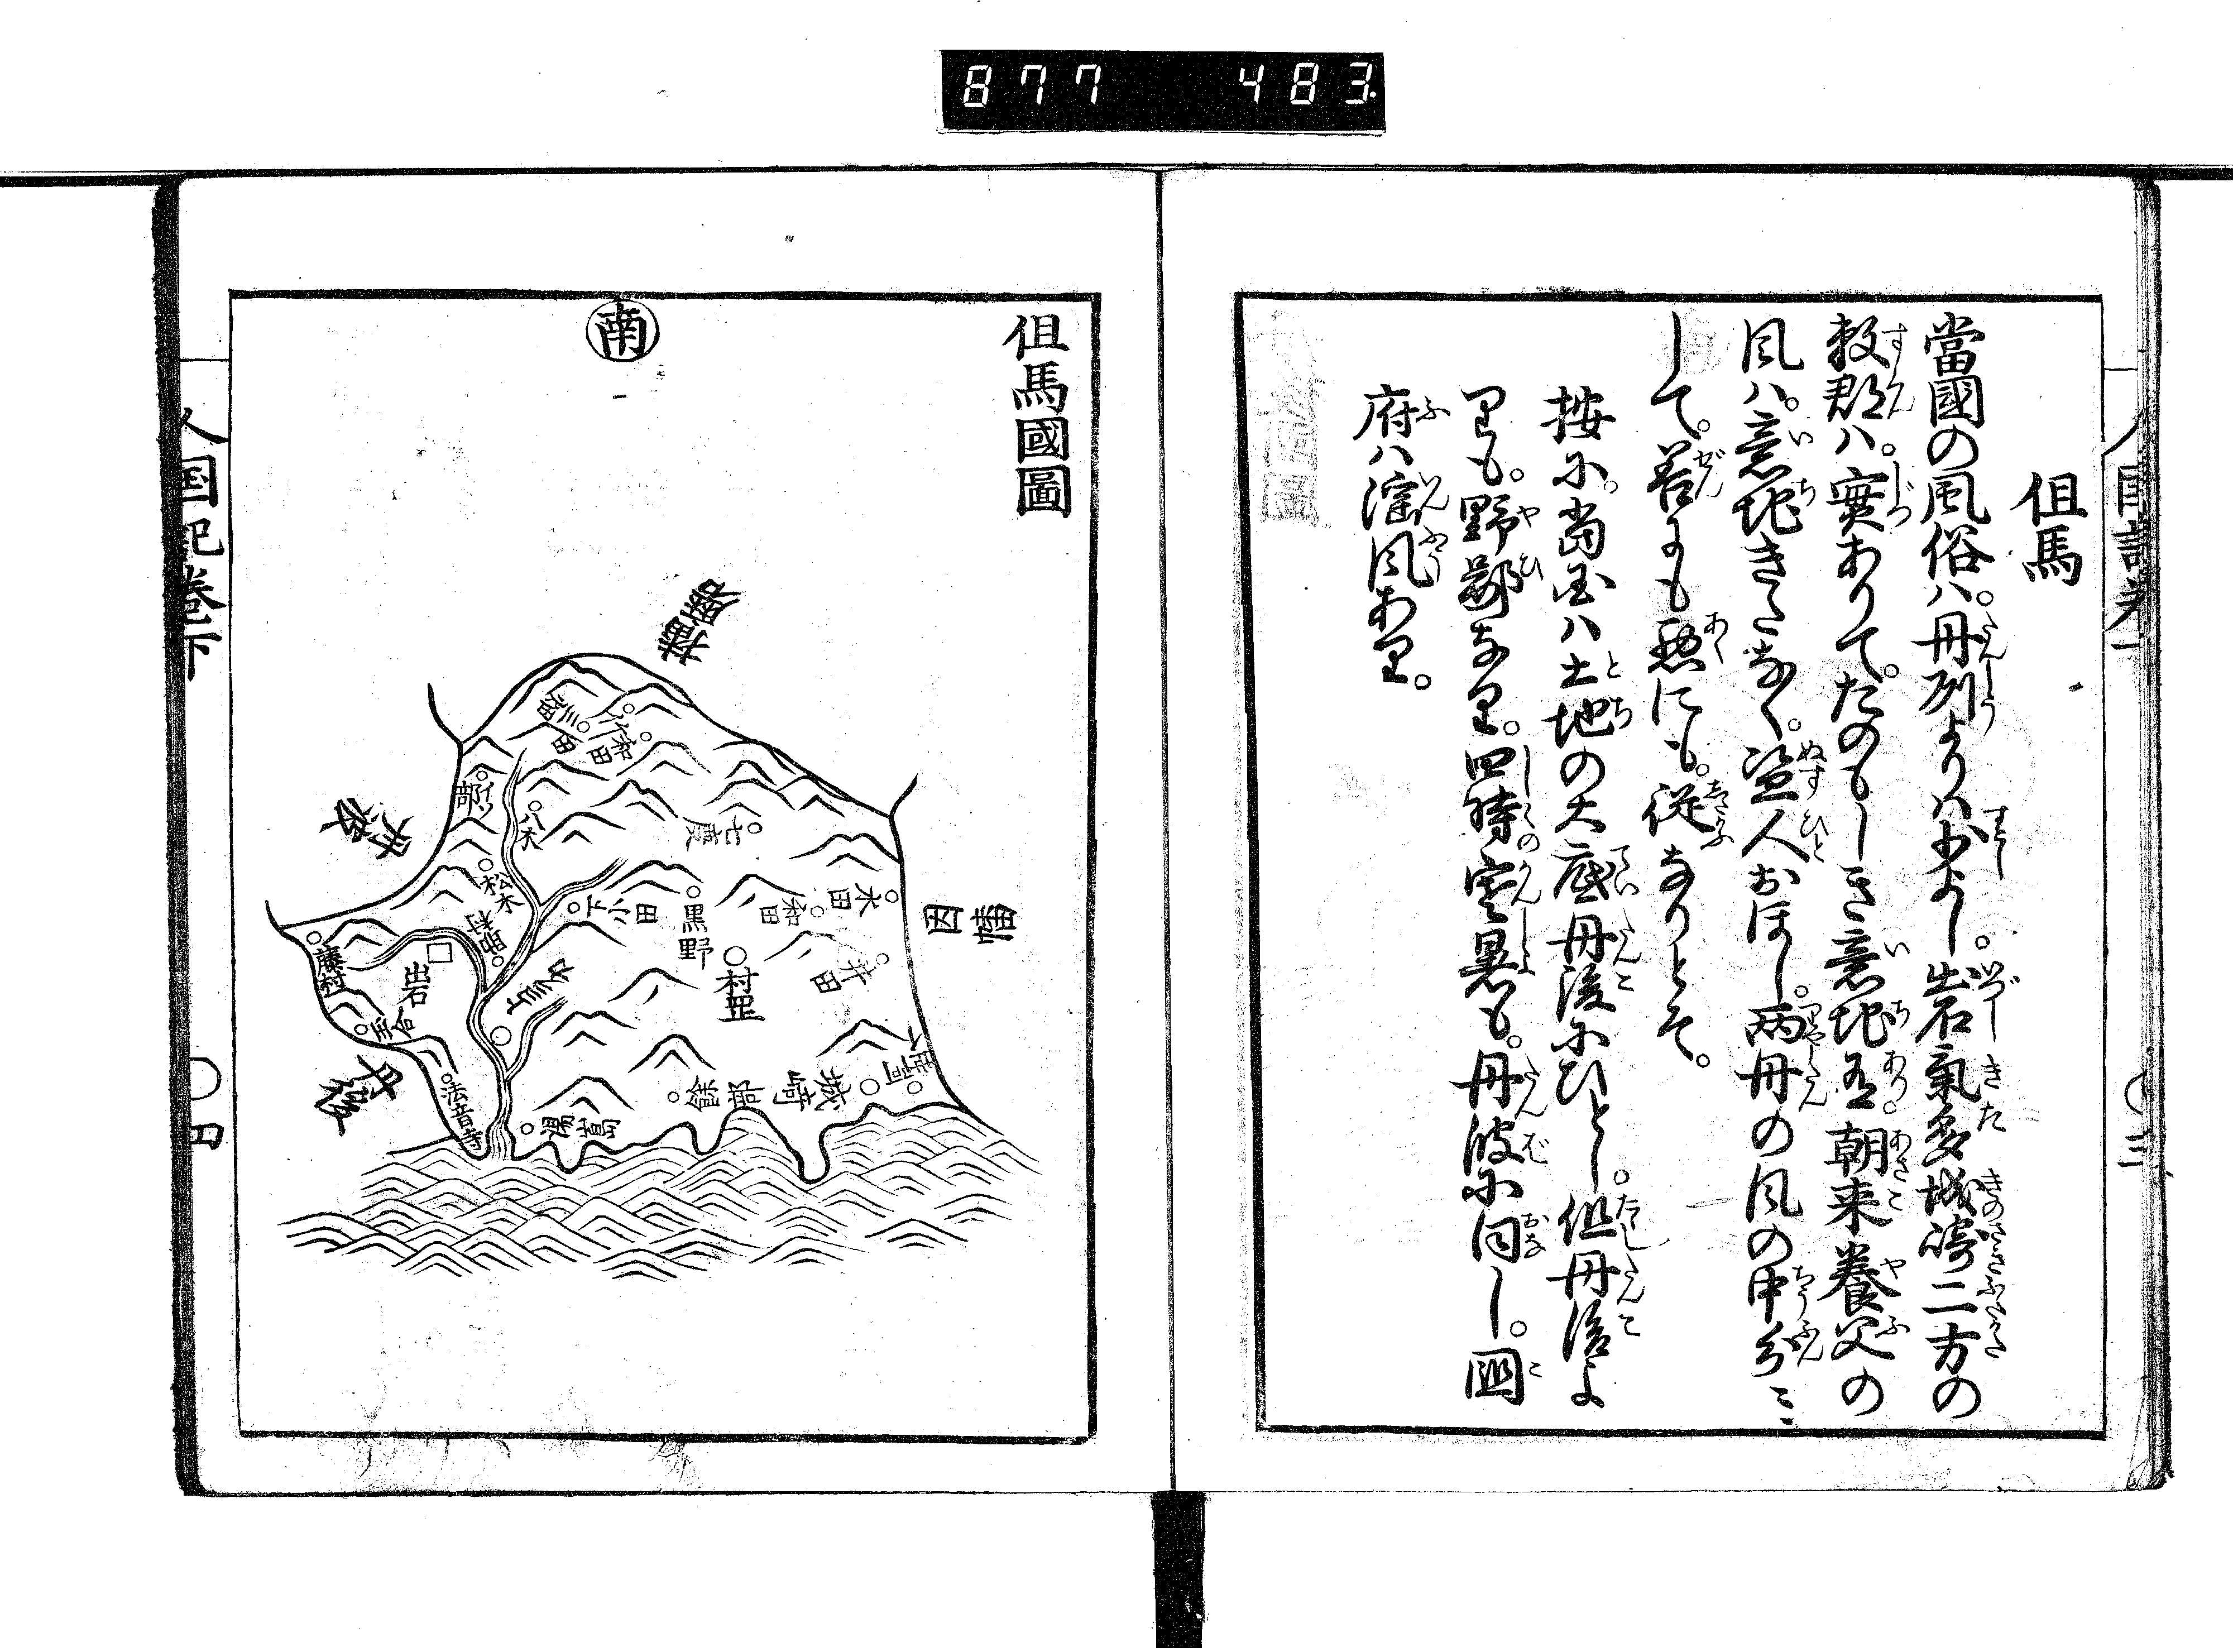 877 483
但馬
當國の風俗ハ。丹列よりハ少よし。出石氣多城崎二方の
数郡ハ。實ありて。たのもしき意地有。朝来養父の
風ハ。意地きたなく。盗人おほし。両丹の風の中分ニ
して。善にも悪にも。従なりとそ。
按に。當国ハ土地の大底丹後にひとし。但丹後よ
りも。野鄙なり。四時寒暑も。丹波に同し。國
府ハ淫風あり。
但馬國圖
南
播磨
丹波
丹後
因幡
竹田
和田
八木
松木
七度
黒野
村岡
出石
藤村
河合
法音寺
湯嶌
城崎
井田
人国記巻下
〇四